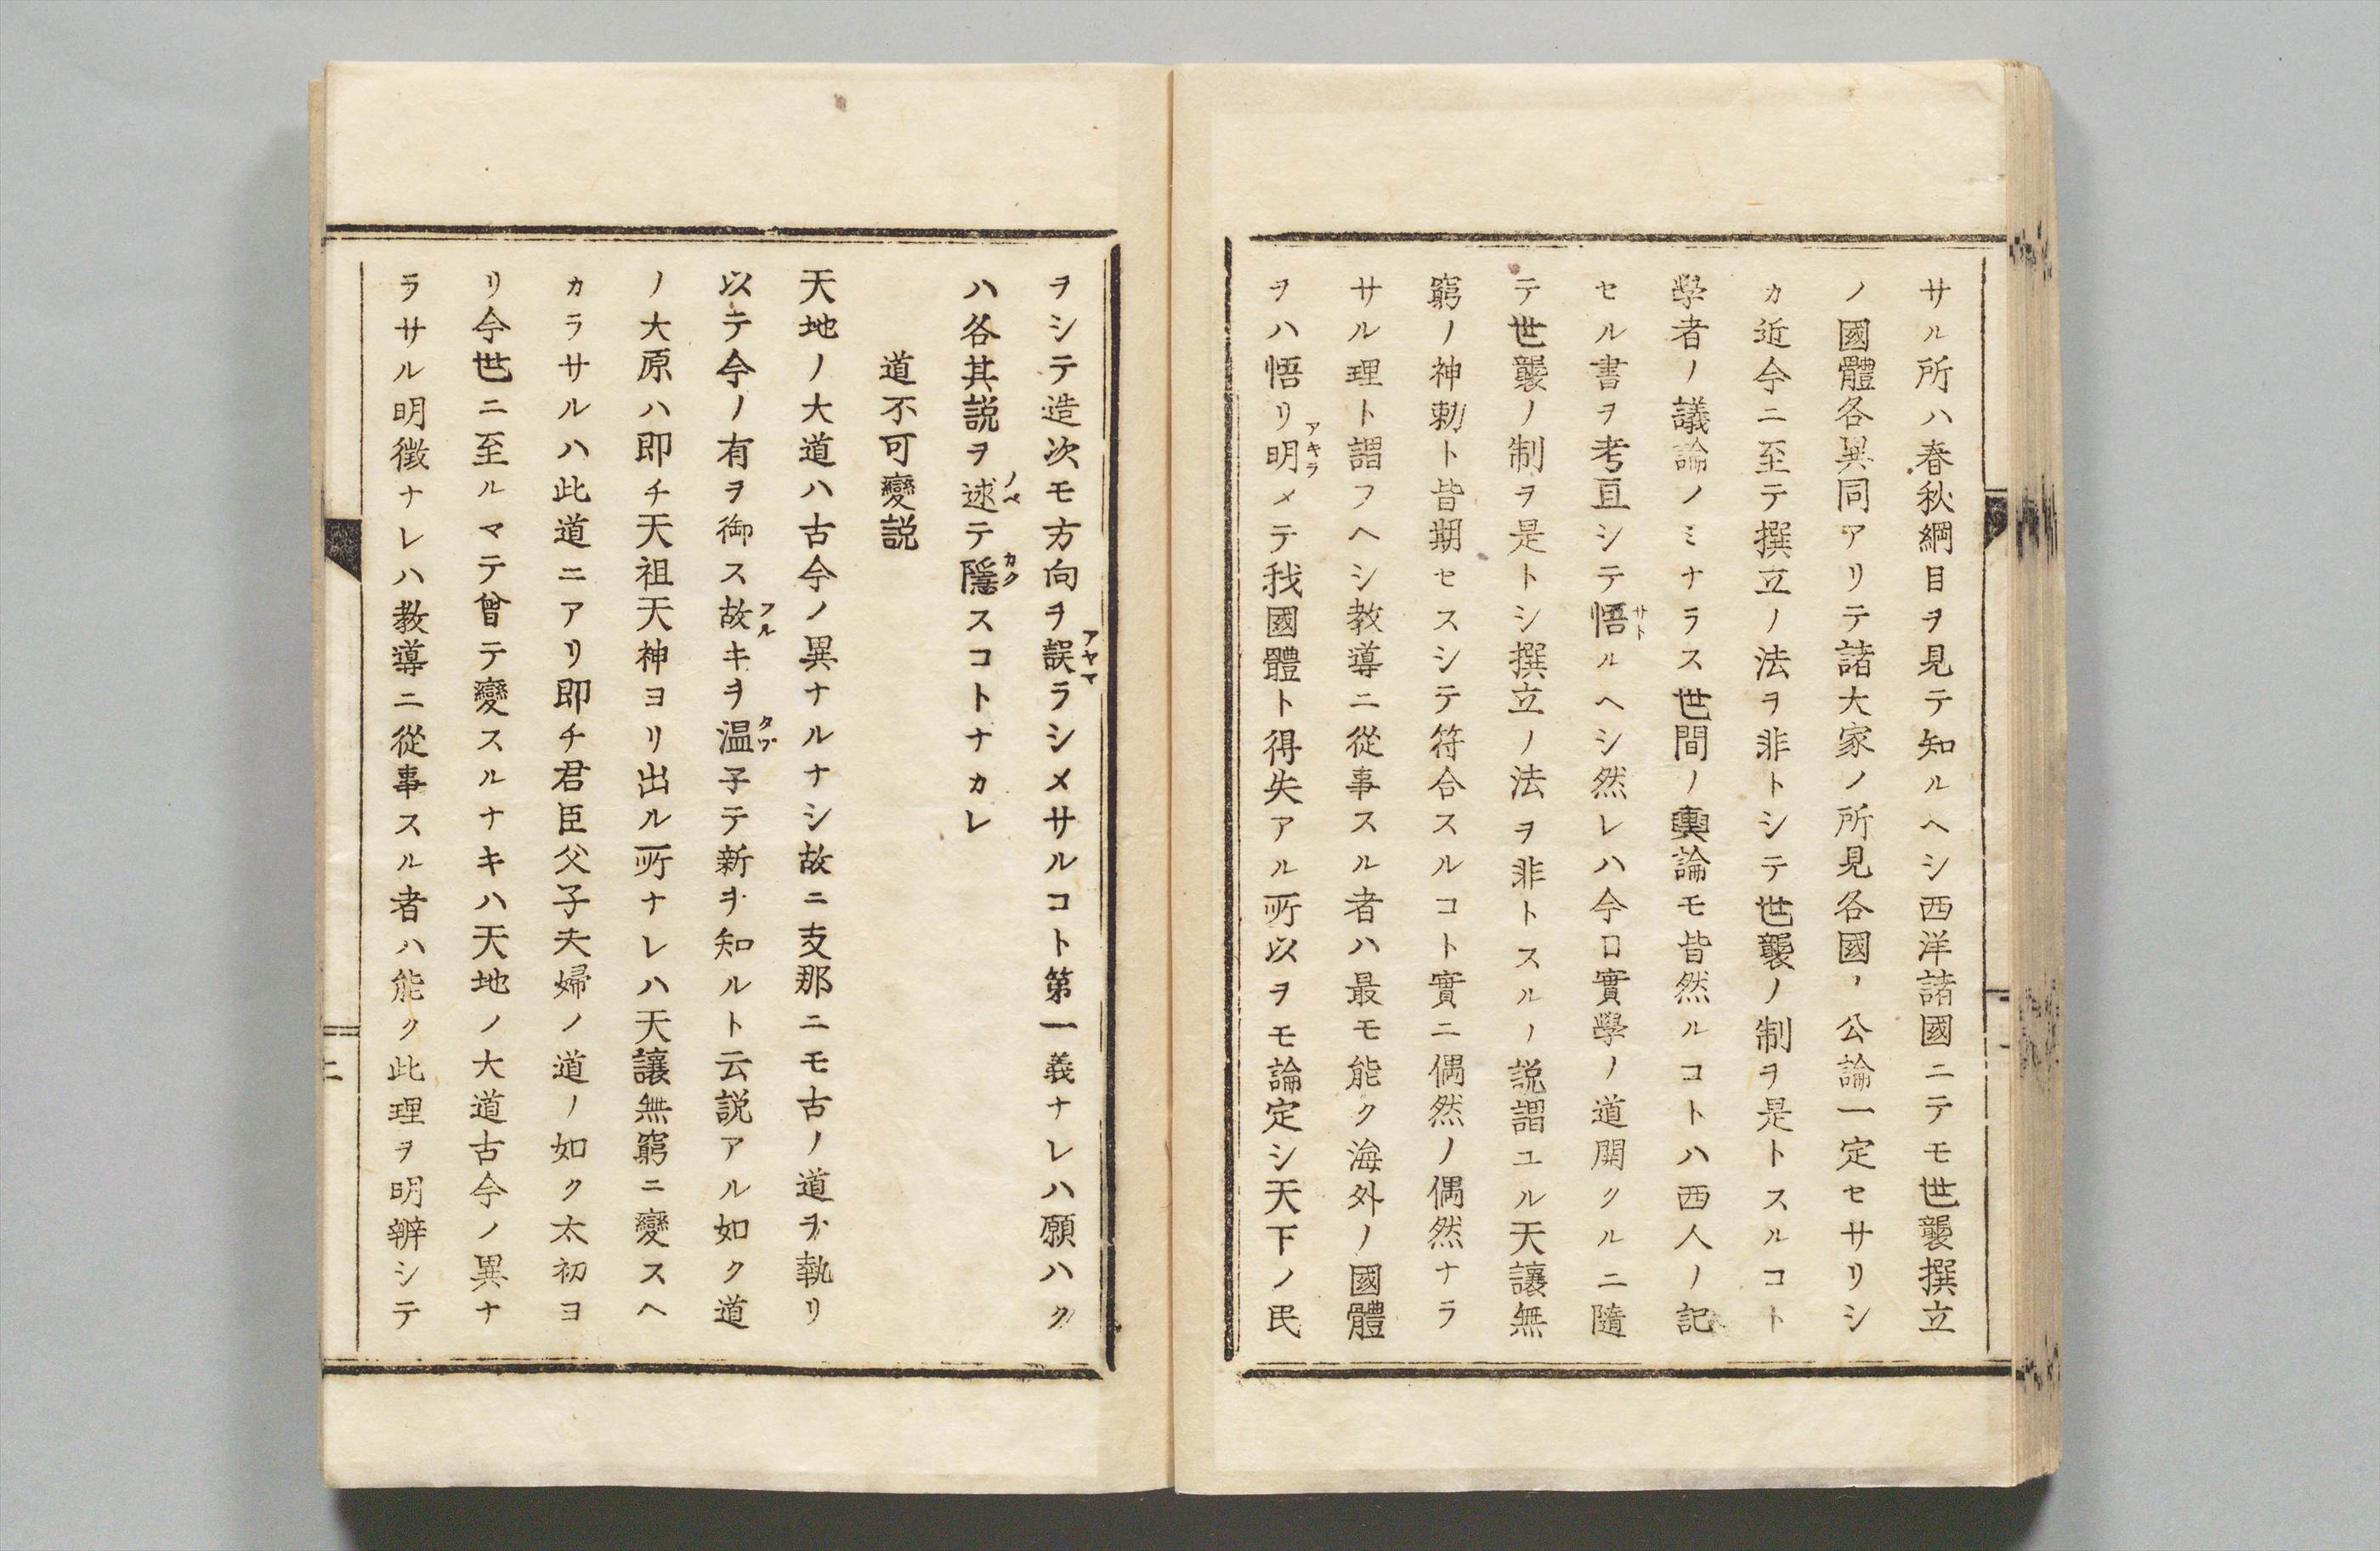 サル所ハ春秋綱目ヲ見テ知ルヘシ西洋諸國ニテモ世襲撰立
ノ國體各異同アリテ諸大家ノ所見各國ノ公論一定セサリシ
カ近今ニ至テ撰立ノ法ヲ非トシテ世襲ノ制ヲ是トスルコト
學者ノ議論ノミナラス世間ノ輿論モ皆然ルコトハ西人ノ記
セル書ヲ考亘シテ悟サトルヘシ然レハ今日實學ノ道開クルニ隨
テ世襲ノ制ヲ是トシ撰立ノ法ヲ非トスルノ説謂ユル天讓無
窮ノ神勅ト皆期セスシテ符合スルコト實ニ偶然ノ偶然ナラ
サル理ト謂フヘシ教導ニ從事スル者ハ最モ能ク海外ノ國體
ヲハ悟リ明アキラメテ我國體ト得失アル所以ヲモ論定シ天下ノ民
ヲシテ造次モ方向ヲ誤アヤマラシメサルコト第一義ナレハ願ハク
ハ各其説ヲ述ノベテ隱カクスコトナカレ
道不可變説
天地ノ大道ハ古今ノ異ナルナシ故ニ支那ニモ古ノ道ヲ執リ
以テ今ノ有ヲ御ス故フルキヲ温タヅ子テ新ヲ知ルト云説アル如ク道
ノ大原ハ即チ天祖天神ヨリ出ル所ナレハ天讓無窮ニ變スヘ
カラサルハ此道ニアリ即チ君臣父子夫婦ノ道ノ如ク太初ヨ
リ今世ニ至ルマテ曾テ變スルナキハ天地ノ大道古今ノ異ナ
ラサル明徴ナレハ教導ニ從事スル者ハ能ク此理ヲ明辨シテ